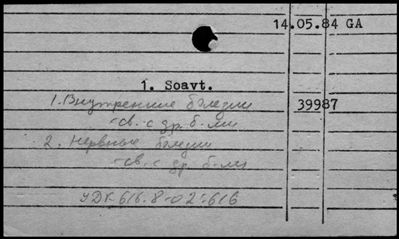 14.05.84 GA
1. Soavt.
1. Внутренние болезни 39987
-св. с др. б-ми
2. Нервные болезни
-св. с др. б-ми
УДК 616.8-02:616